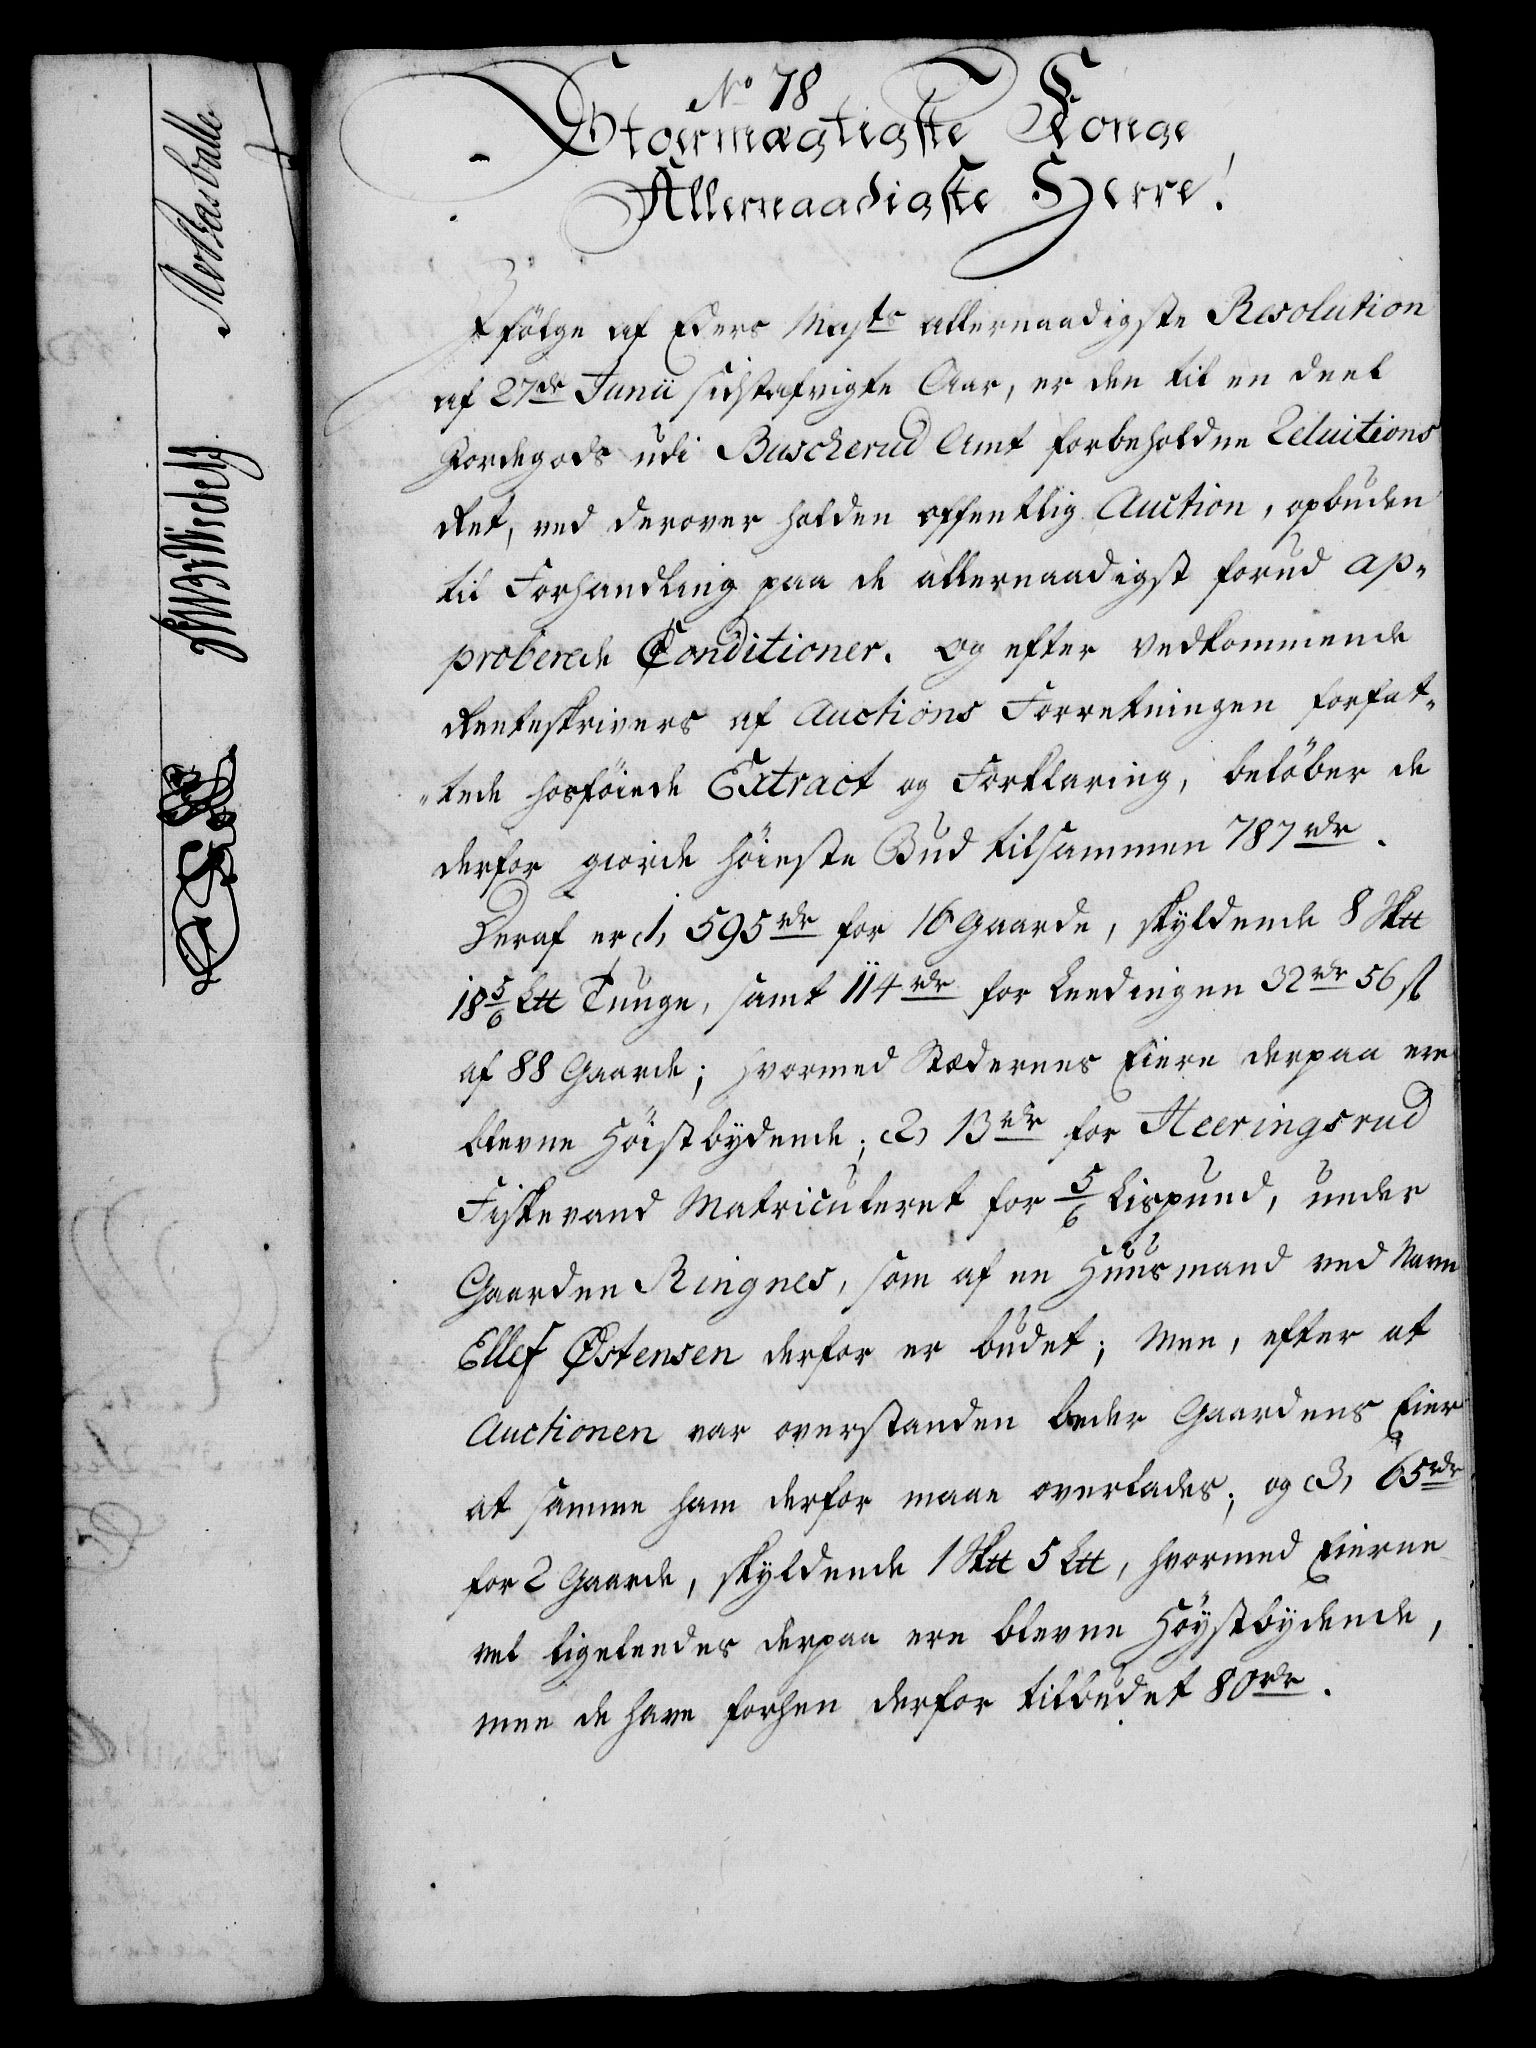 No 78
Stoermægtigste Konge
Allernaadigste Herre!
I fölge af Eders Mayts allernaadigste Resolution
af 27de Junii sidstafvigte Aar, er den til en deel
Jordegods udi Buscherud Amt forbeholdne Reluitions
Ret, ved derover holden offentlig Auction, opbuden
til Forhandling paa de allernaadigst forud ap-
proberede Conditioner. Og efter vedkommende
Renteskrivers af Auctions Forretningen forfat-
tede hosföiede Extract og Forklaring, belöber de
derfor giorde höieste Bud tilsammen 787 rdr.
Deraf er 1, 595 rdr for 16 Gaarde, skyldende 8 Sk℔
18 5/6 L℔ Tunge, samt 114 rdr for Leedingen 32 rdr 56 sk
af 88 Gaarde; hvormed Stædernes Eiere derpaa ere
blevne Höistbydende; 2, 13 rdr for Heeringsrud
Fiskevand Matriculeret for 5/6 Lispund, under
Gaarden Ringnes, som af en Huusmand ved Navn
Ellef Østensen derfor er budet; Men, efter at
Auctionen var overstanden beder Gaardens Eier
at samme ham derfor maae overlades; og 3, 65 rdr
for 2 Gaarde, skyldende 1 Sk℔ 5 L℔, hvormed Eierne
vel ligeleedes derpaa ere blevne Höystbydende,
men de have forhen derfor tilbudet 80 rdr.